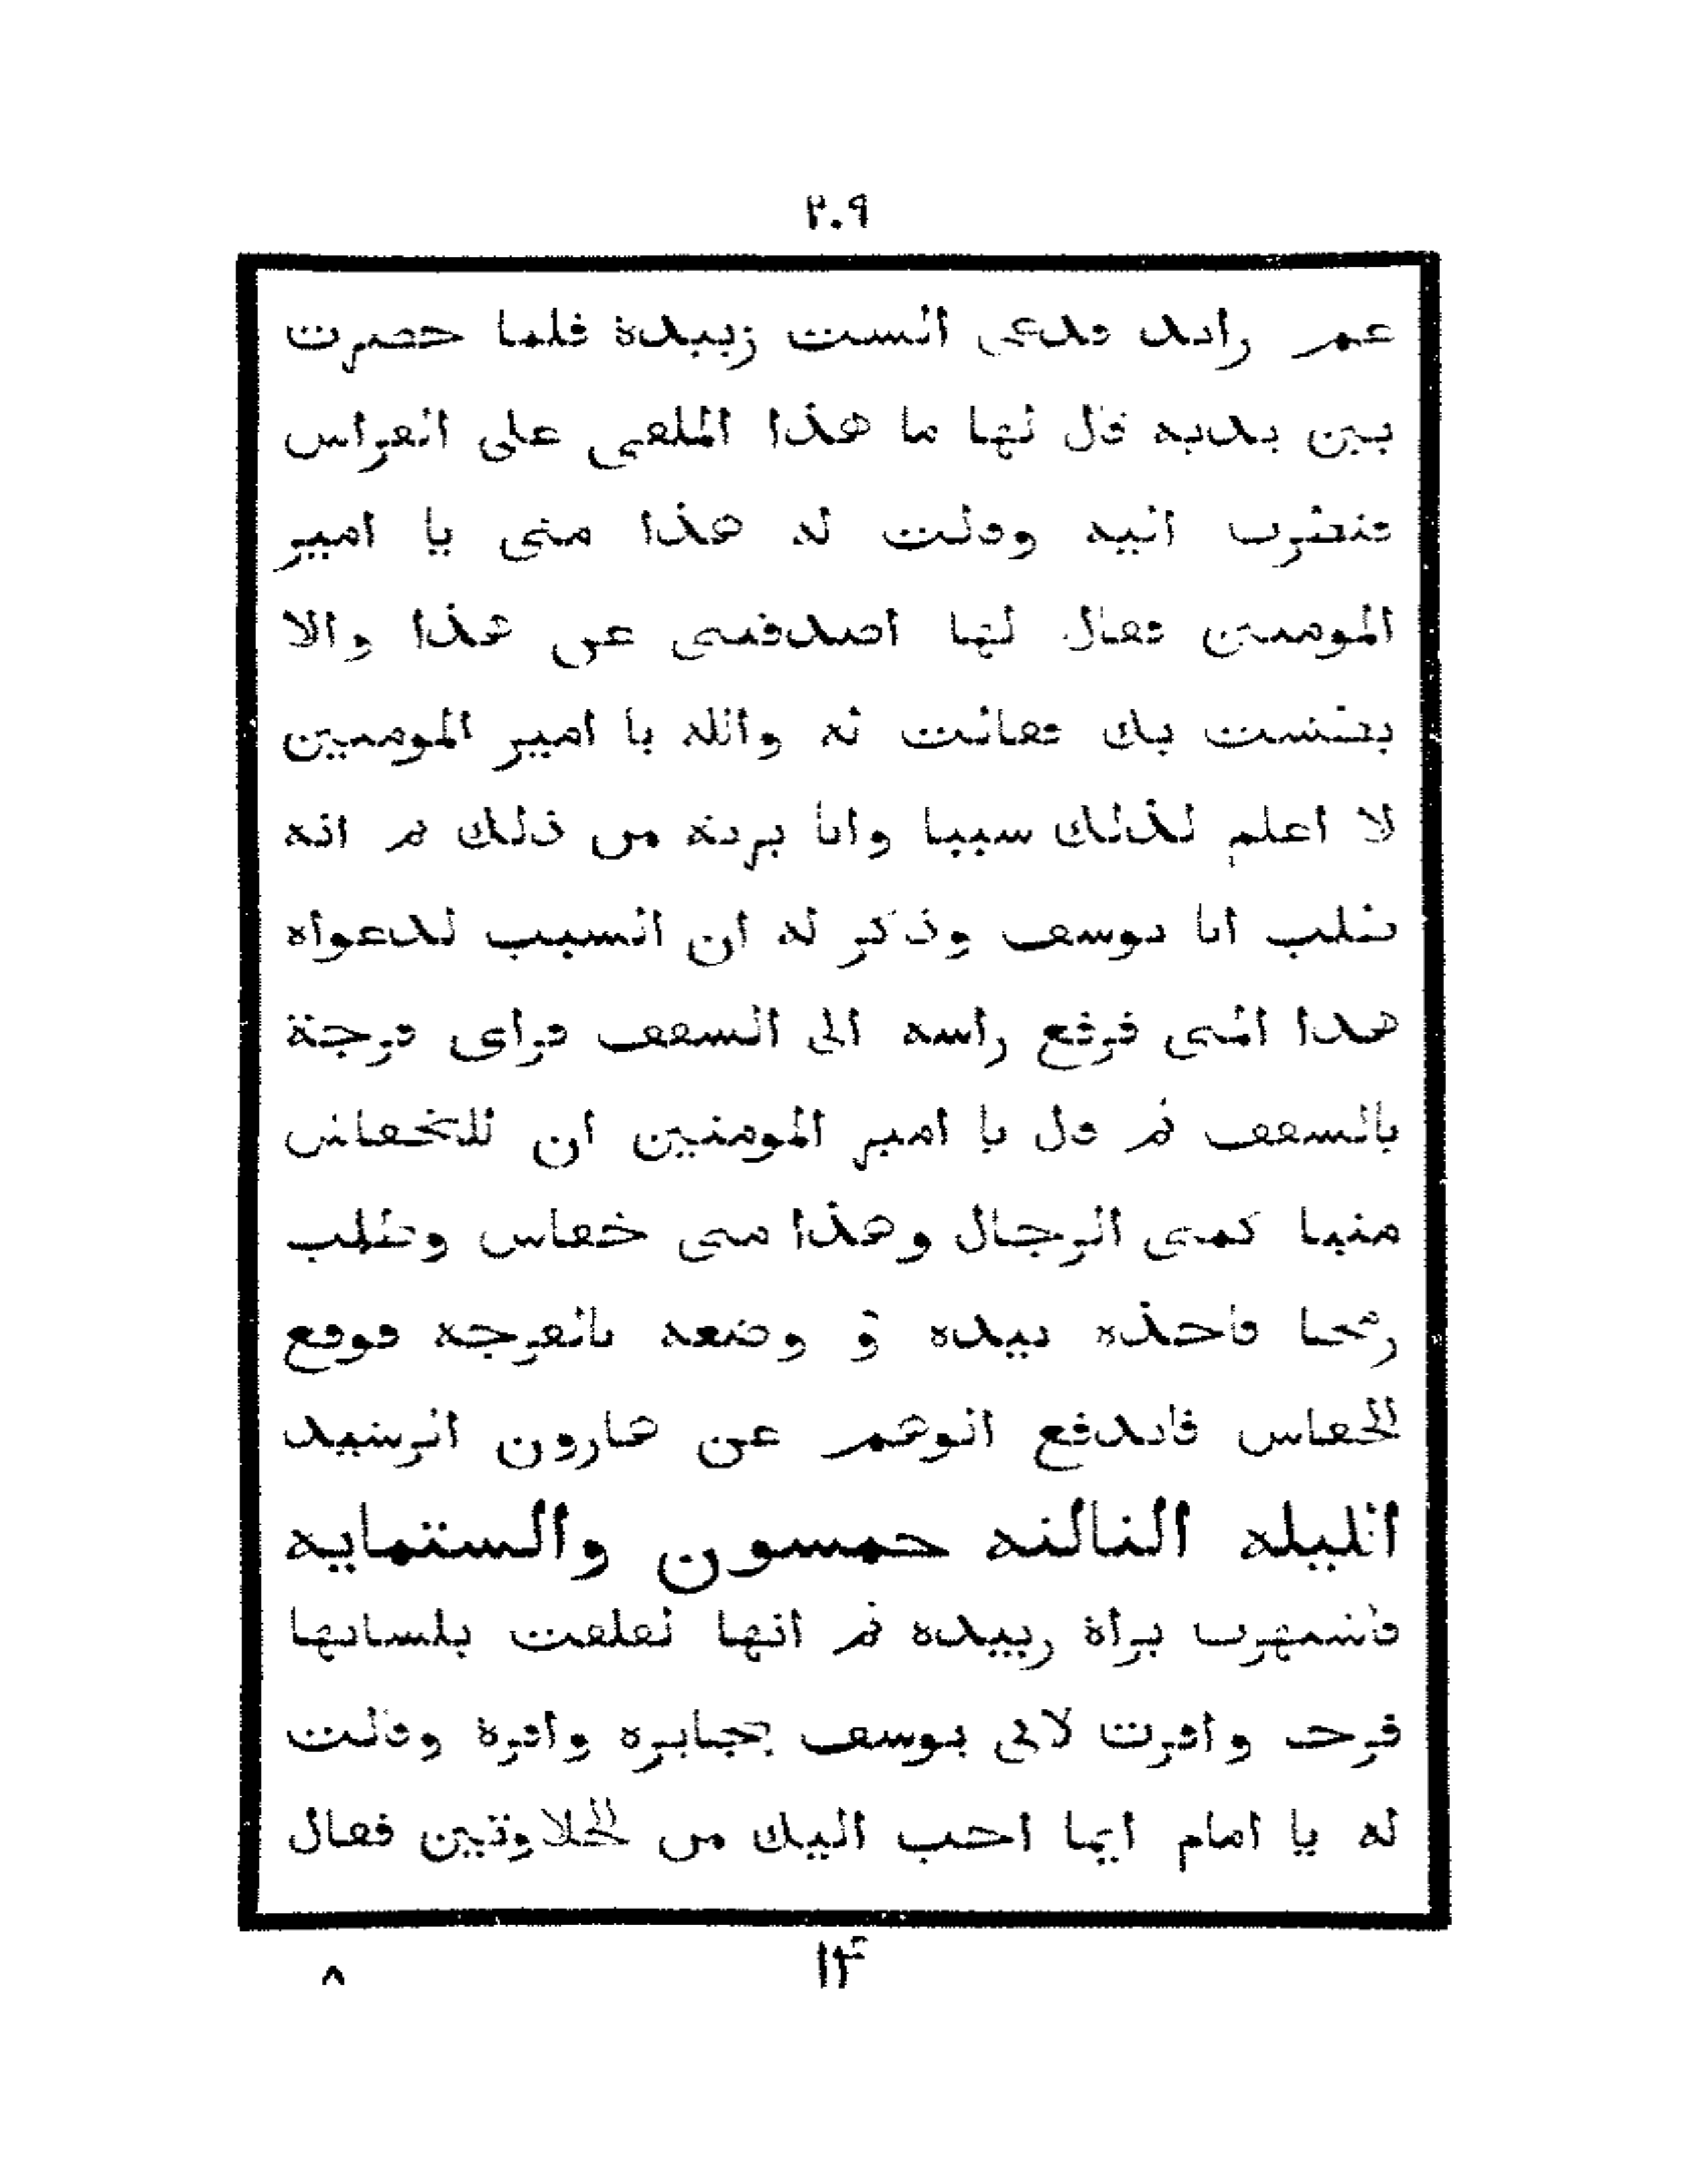 ٢٠٩
غم زايد فدعى الست زبيدة فلما حضرت
بين يديه قال لها ما هذا الملقى على الفراش
فنظرت اليه وقالت له هذا منى يا امير
المومنين فقال لها اصدقينى عن هذا والا
بطشت بك فقالت له والله يا امير المومنين
لا اعلم لذلك سببا وانا برية من ذلك ثم انه
طلب ابا يوسف وذكر له ان السبب لدعواه
هذا المنى فرفع راسه الى السقف فراى فرجة
بالسقف ثم قال يا امير المومنين ان للخفاش
منيا كمنى الرجال وهذا منى خفاش وطلب
رمحا فاخذه بيده و وضعه بالفرجه فوقع
الخفاش فاندفع الوهم عن هارون الرشيد
الليله الثالثه خمسون والستمايه
فاشتهرت براة زبيده ثم انها نطقت بلسانها
فرحت واقرت لابى يوسف بجايزه وافرة وقالت
له يا امام ايما احب اليك من الحلاوتين فقال
١٤
٨